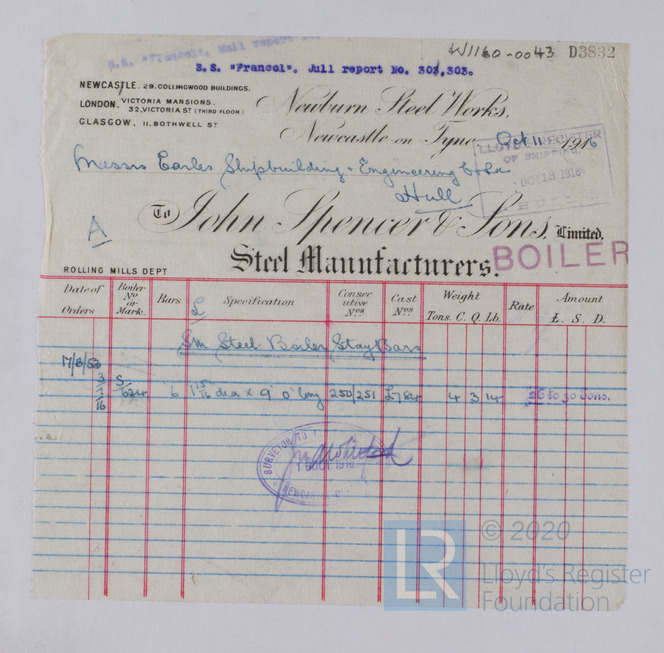 W1160-0043 D3832
S.S. "Francol". Jull report No. 303,303.
NEWCASTLE. 29. COLLINGWOOD BUILDINGS.
LONDON. VICTORIA MANSIONS.
32, VICTORIA ST (THIRD FLOOR)
GLASGOW. 11, BOTHWELL ST
Newburn Steel Works,
Newcastle-on-Tyne, Oct 11 1916
LLOYD'S REGISTER
OF SHIPPING
OCT 18 1916
HULL
Messrs Earles Shipbuilding & Engineering Co Ld
Hull
A
To John Spencer & Sons, Limited.
Steel Manufacturers.
BOILER
ROLLING MILLS DEPT
Date of Orders
Boiler No or Mark.
Bars
£
Specification
Consecutive Nos
Cast Nos
Weight
Tons. C. Q. Lb.
Rate
Amount
£. S. D.
Sm Steel Boiler Stay Bars
17/8/53
3/7/16 S/624 6 1 15/16 dia x 9' 0" long 250/251 £784 4 3 14 26 to 30 tons.
SURVEYOR TO
OCT 1916
NEWCASTLE
LR
© 2020
Lloyd's Register
Foundation